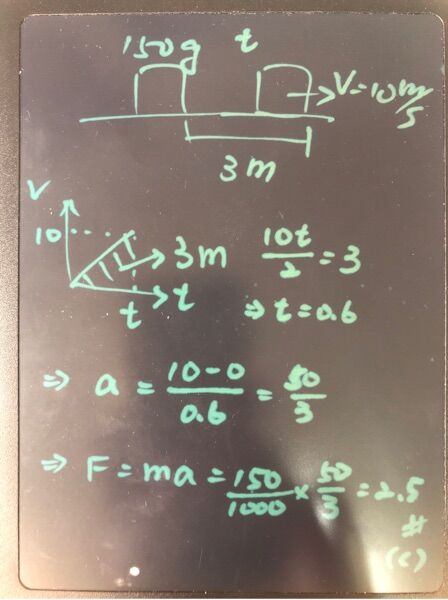 150g t
V=10m/s
3m
V
10
3m
t
t
10t/2 = 3
⇒ t = 0.6
⇒ a = 10-0/0.6 = 50/3
⇒ F = ma = 150/1000 × 50/3 = 2.5
#
(c)